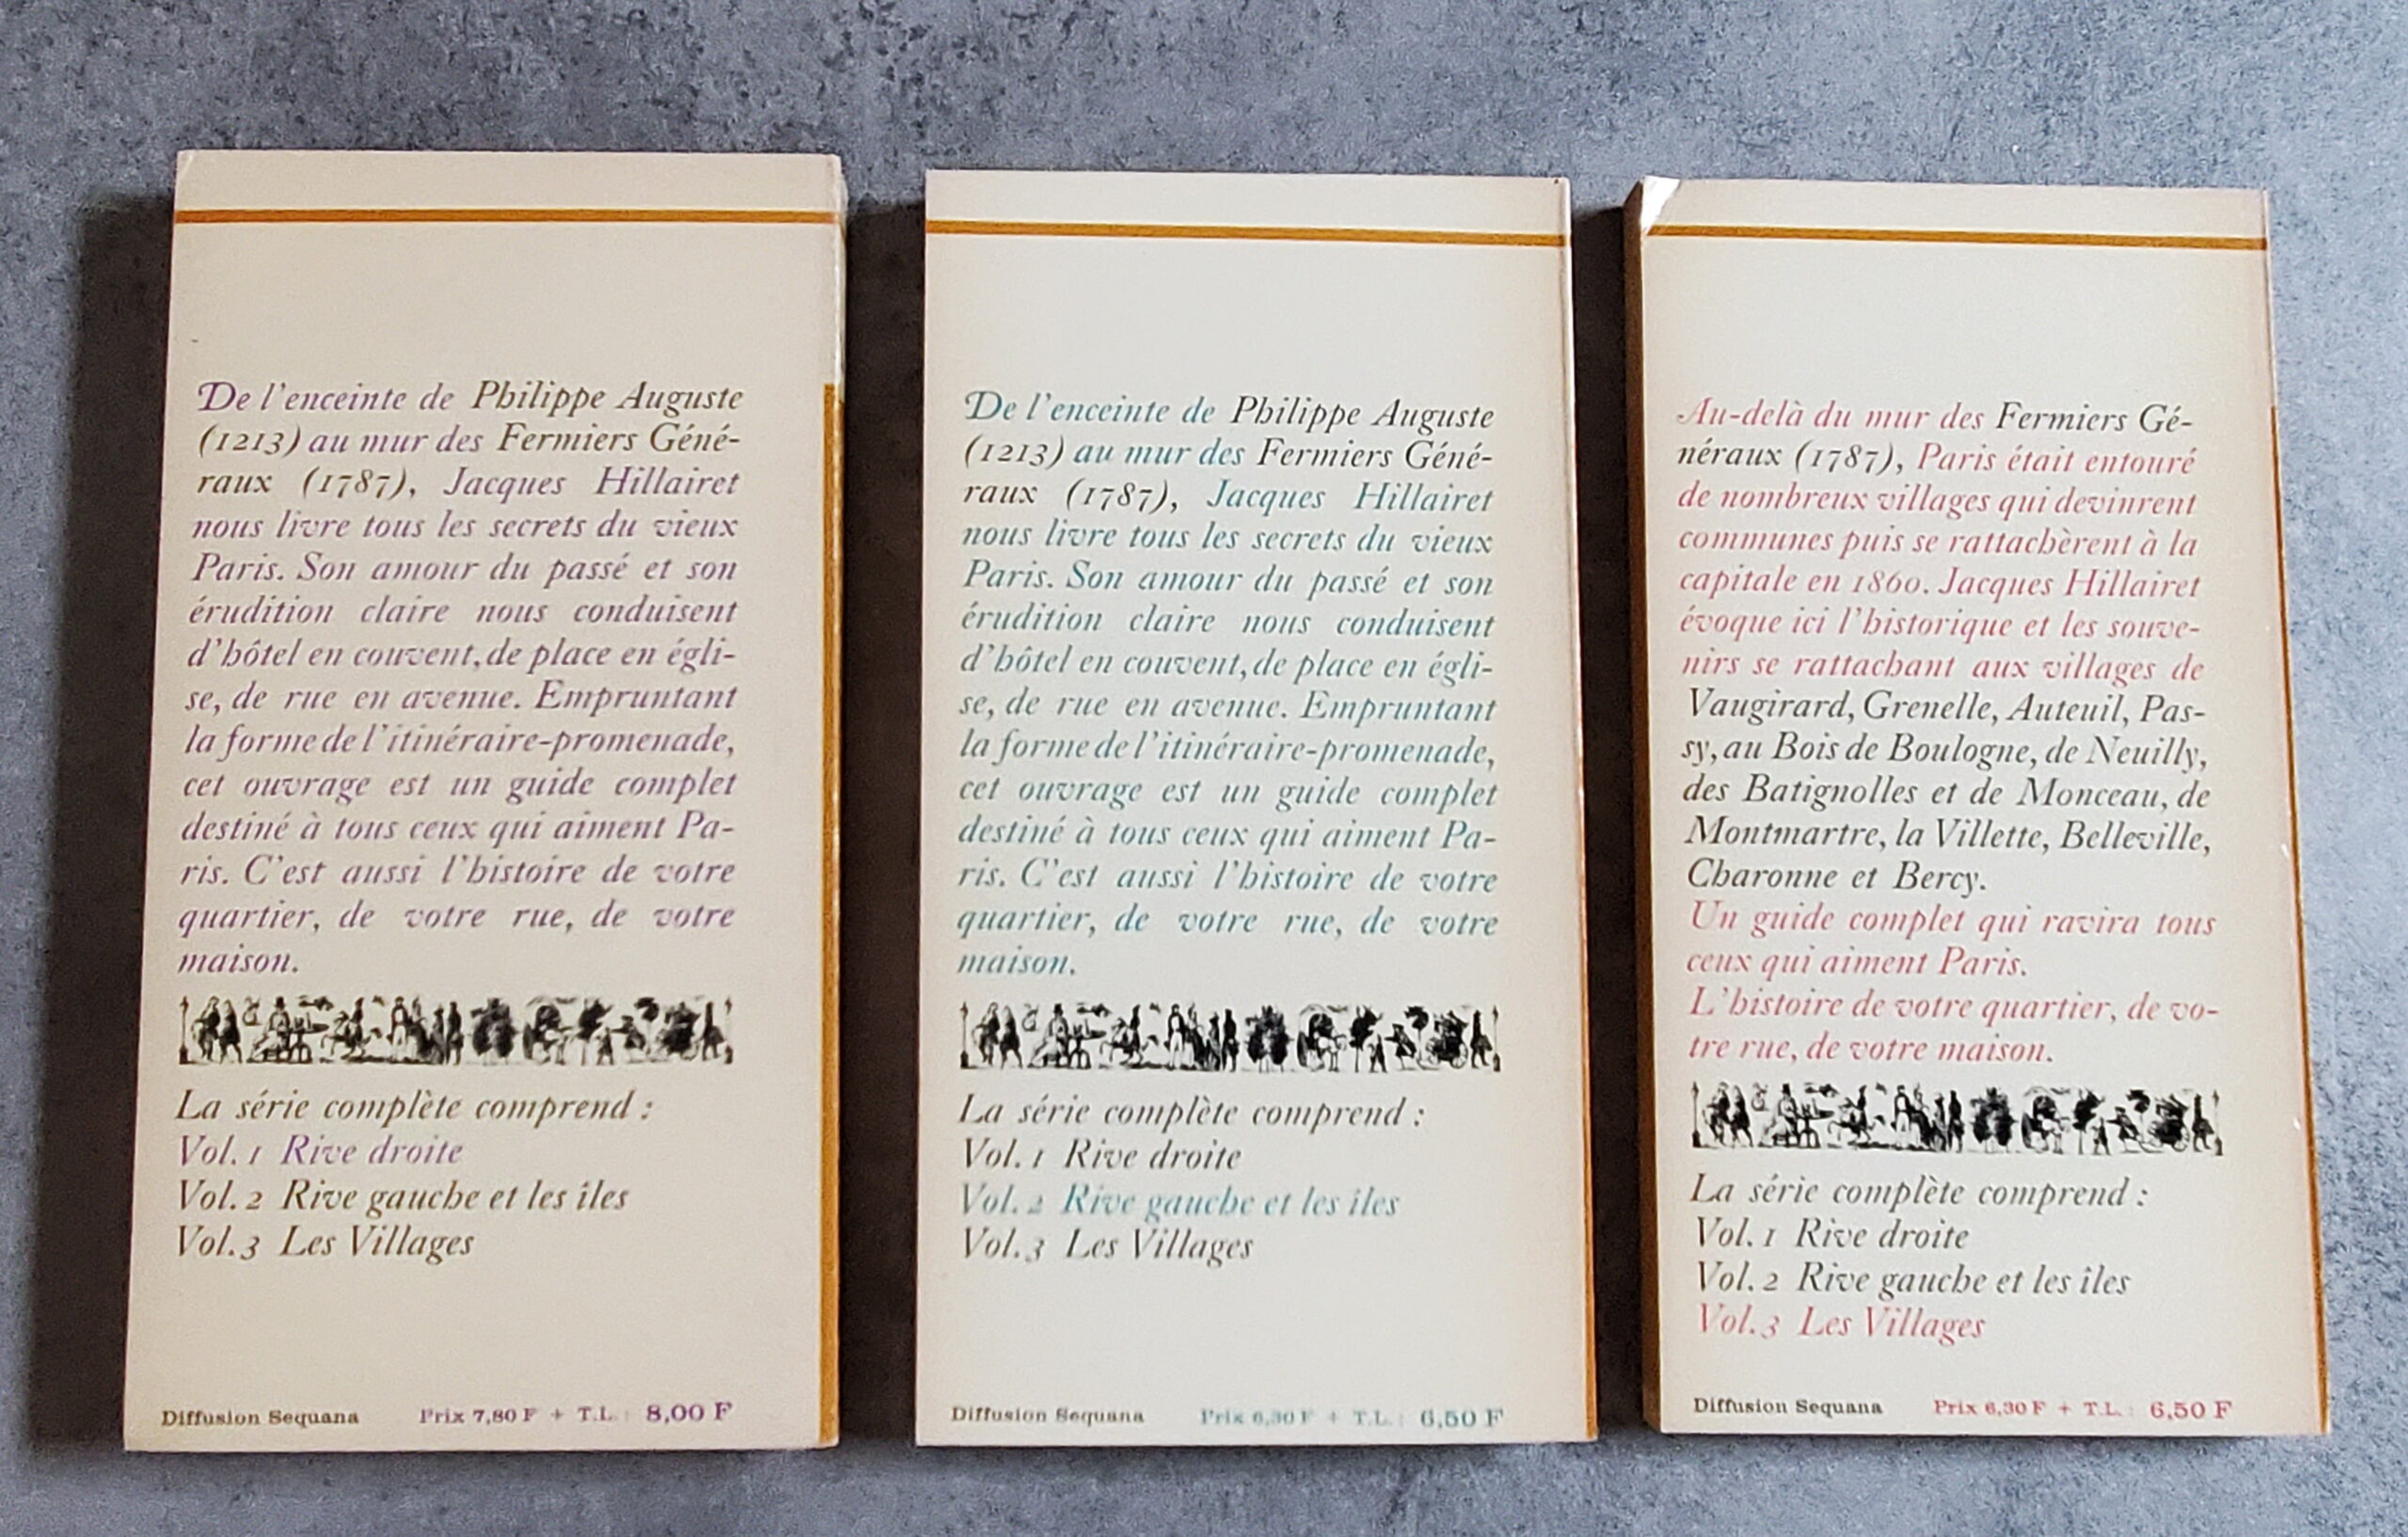 De l'enceinte de Philippe Auguste
(1213) au mur des Fermiers Géné-
raux (1787), Jacques Hillairet
nous livre tous les secrets du vieux
Paris. Son amour du passé et son
érudition claire nous conduisent
d'hôtel en couvent, de place en égli-
se, de rue en avenue. Empruntant
la forme de l'itinéraire-promenade,
cet ouvrage est un guide complet
destiné à tous ceux qui aiment Pa-
ris. C'est aussi l'histoire de votre
quartier, de votre rue, de votre
maison.
La série complète comprend :
Vol. 1 Rive droite
Vol. 2 Rive gauche et les îles
Vol. 3 Les Villages
Diffusion Sequana Prix 7,80 F + T.L. : 8,00 F
De l'enceinte de Philippe Auguste
(1213) au mur des Fermiers Géné-
raux (1787), Jacques Hillairet
nous livre tous les secrets du vieux
Paris. Son amour du passé et son
érudition claire nous conduisent
d'hôtel en couvent, de place en égli-
se, de rue en avenue. Empruntant
la forme de l'itinéraire-promenade,
cet ouvrage est un guide complet
destiné à tous ceux qui aiment Pa-
ris. C'est aussi l'histoire de votre
quartier, de votre rue, de votre
maison.
La série complète comprend :
Vol. 1 Rive droite
Vol. 2 Rive gauche et les îles
Vol. 3 Les Villages
Diffusion Sequana Prix 6,30 F + T.L. : 6,50 F
Au-delà du mur des Fermiers Gé-
néraux (1787), Paris était entouré
de nombreux villages qui devinrent
communes puis se rattachèrent à la
capitale en 1860. Jacques Hillairet
évoque ici l'historique et les souve-
nirs se rattachant aux villages de
Vaugirard, Grenelle, Auteuil, Pas-
sy, au Bois de Boulogne, de Neuilly,
des Batignolles et de Monceau, de
Montmartre, la Villette, Belleville,
Charonne et Bercy.
Un guide complet qui ravira tous
ceux qui aiment Paris.
L'histoire de votre quartier, de vo-
tre rue, de votre maison.
La série complète comprend :
Vol. 1 Rive droite
Vol. 2 Rive gauche et les îles
Vol. 3 Les Villages
Diffusion Sequana Prix 6,30 F + T.L. : 6,50 F